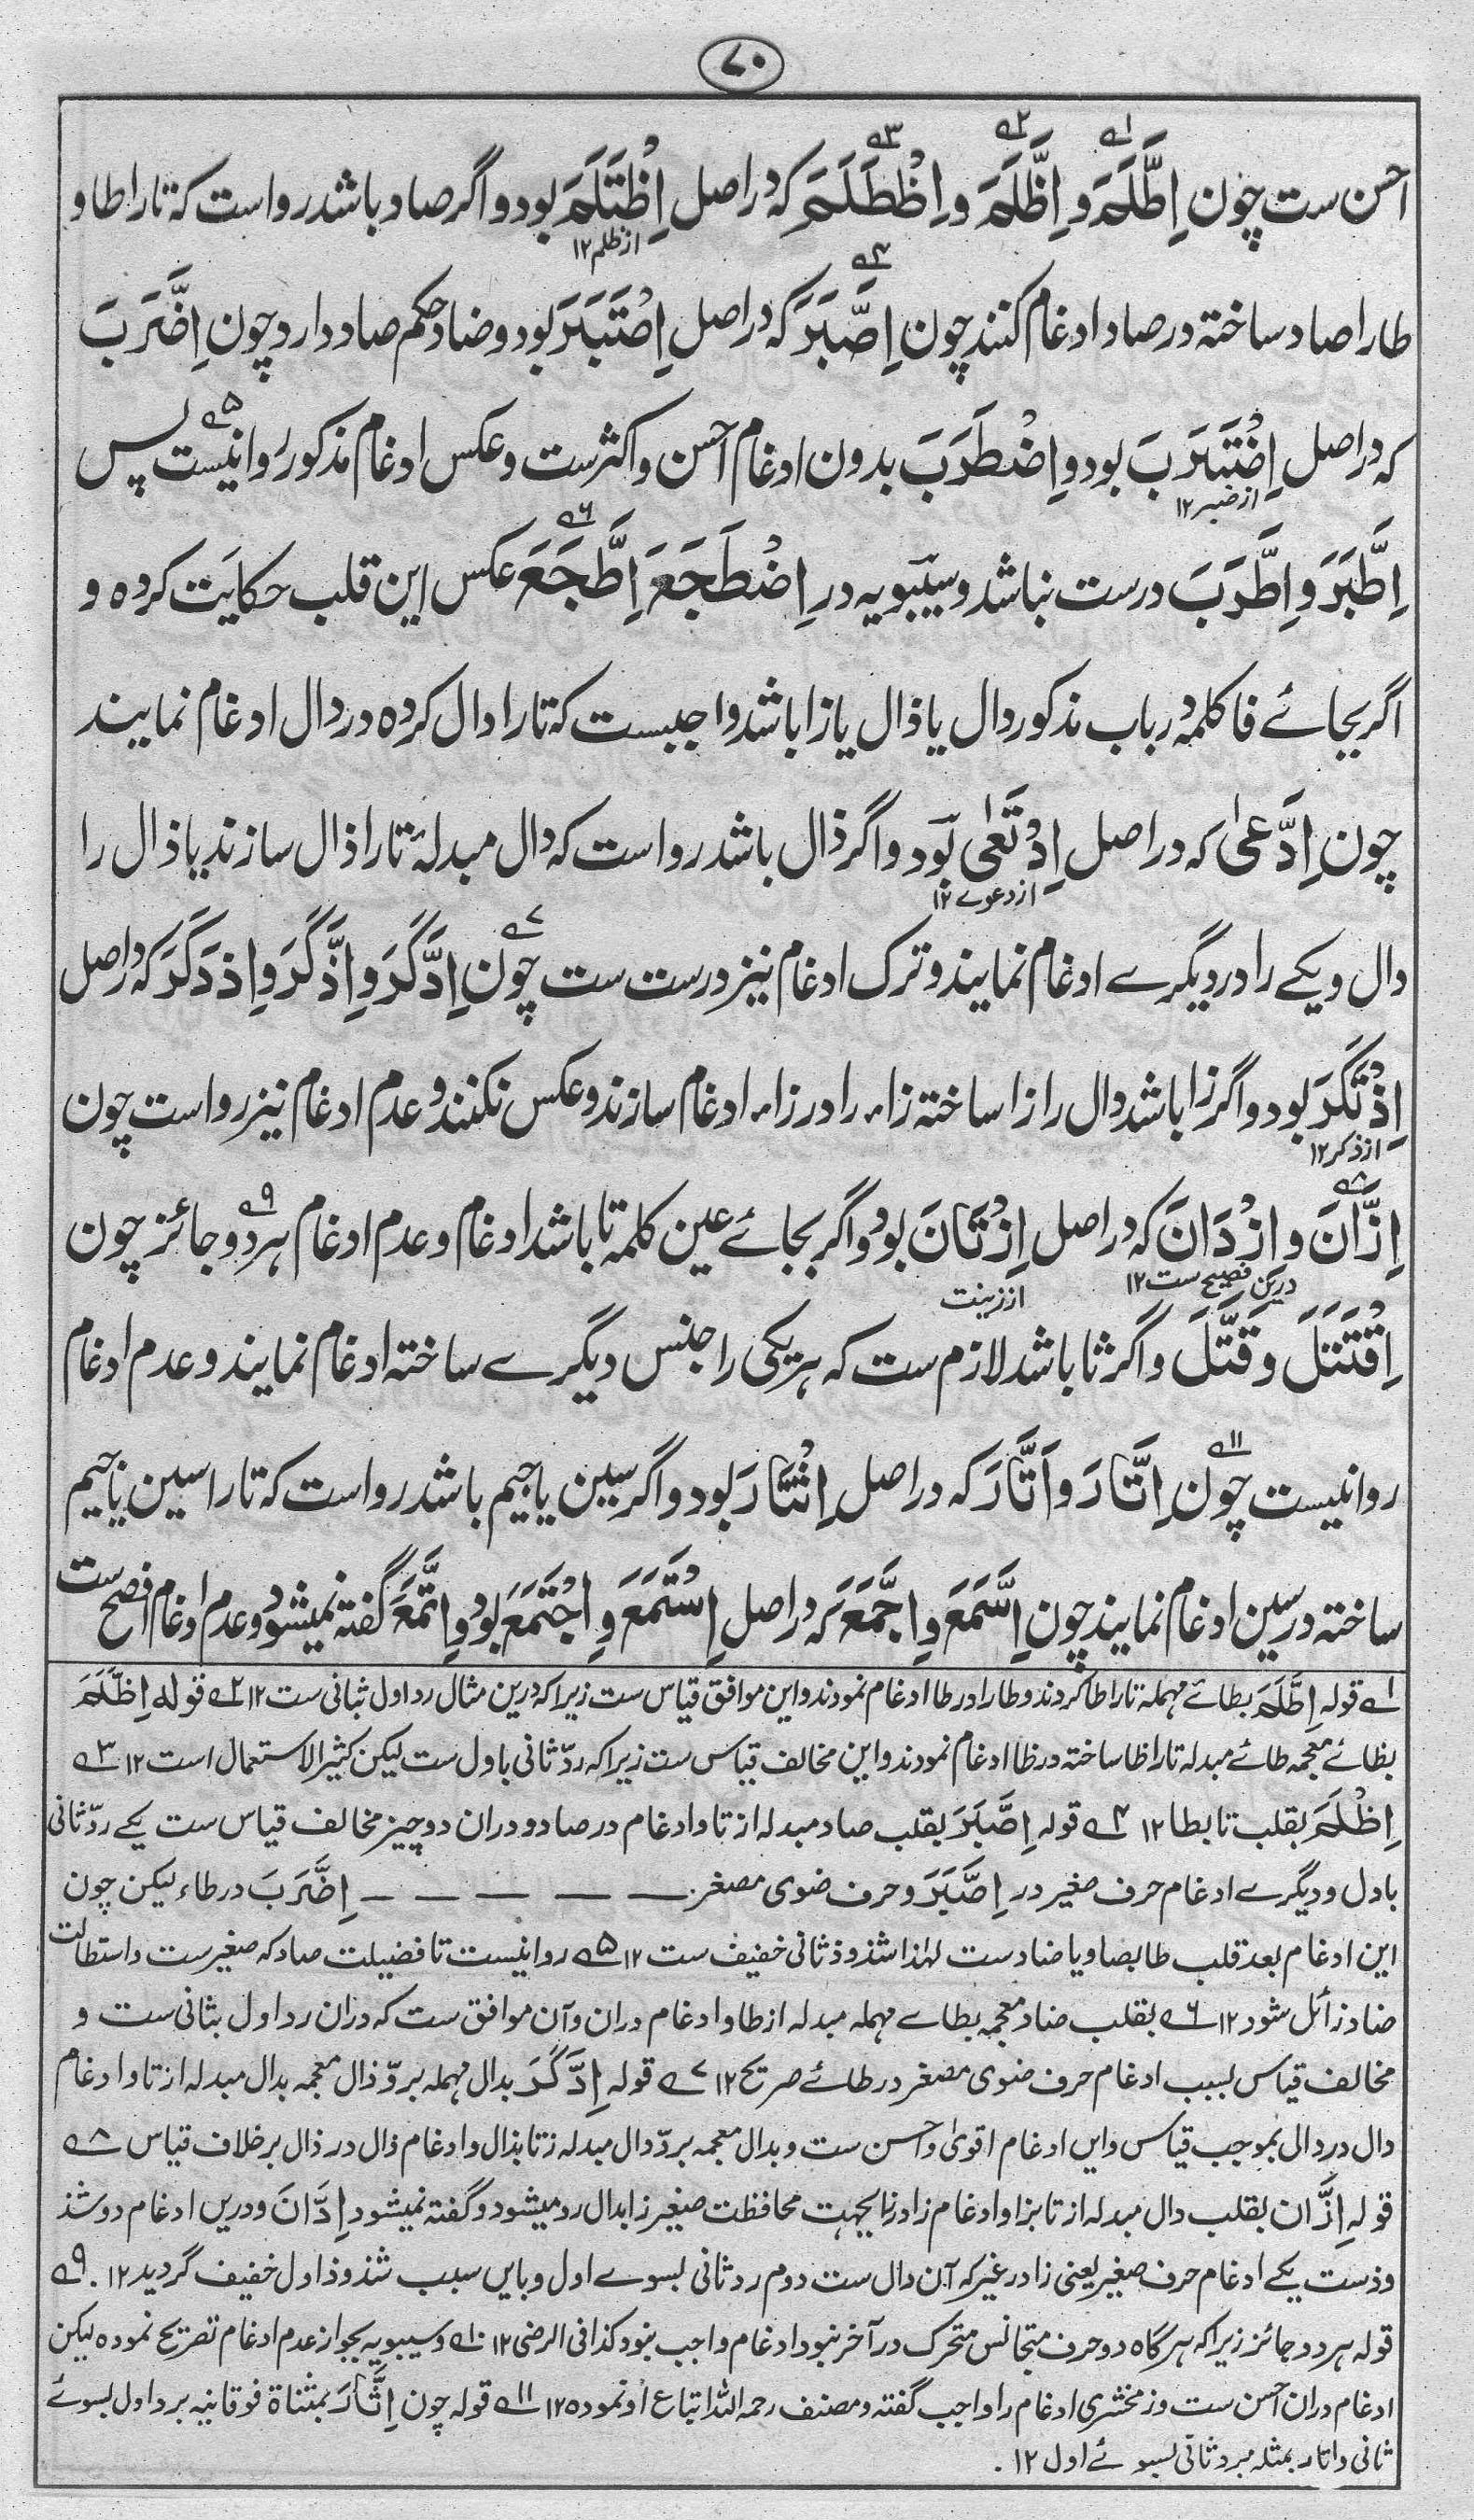 ۷۰
احسن ست چون اِطَّلَمَ و اِظَّلَمَ و اِظْطَلَمَ که در اصل اِظْتَلَمَ بود و اگر صاد باشد رواست که تا را طا و
از ظلم ۱۲
طا را صاد ساخته در صاد ادغام کنند چون اِصَّبَرَ که در اصل اِصْتَبَرَ بود و ضاد حکم صاد دارد چون اِضَّرَبَ
که در اصل اِضْتَرَبَ بود و اِضْطَرَبَ بدون ادغام احسن و اکثرست و عکس ادغام مذکور روا نیست پس
اِطَّبَرَ و اِطَّرَبَ درست نباشد و سیبویه در اِضْطَجَعَ اِطَّجَعَ عکس این قلب حکایت کرده و
اگر بجائے فا کلمه در باب مذکور دال یا ذال یا زا باشد واجبست که تا را دال کرده در دال ادغام نمایند
چون اِدَّعیٰ که در اصل اِدْتَعیٰ بود و اگر ذال باشد رواست که دال مبدلهٔ تا را ذال سازند یا ذال را
از دعوے ۱۲
دال و یکے را در دیگرے ادغام نمایند و ترک ادغام نیز درست ست چون اِدَّکَرَ و اِذَّکَرَ و اِذدَکَرَ که در اصل
اِذْتَکَرَ بود و اگر زا باشد دال را زا ساخته زاء را در زاء ادغام سازند و عکس نکنند و عدم ادغام نیز رواست چون
از ذکر ۱۲
اِزَّانَ و ازْدَانَ که در اصل اِزْتَانَ بود و اگر بجائے عین کلمه تا باشد ادغام و عدم ادغام هر دو جائز چون
درین فصیح ست ۱۲
از زینت
اِقْتَتَلَ و قَتَّلَ و اگر ثا باشد لازم ست که هر یکی را جنس دیگرے ساخته ادغام نمایند و عدم ادغام
روا نیست چون اِتَّارَ و اَثَّارَ که در اصل اِثْتَارَ بود و اگر سین یا جیم باشد رواست که تا را سین یا جیم
ساخته در سین ادغام نمایند چون اِسَّمَعَ و اِجَّمَعَ که در اصل اِسْتَمَعَ و اِجْتَمَعَ بود و اِتَّمَعَ گفته نمیشود و عدم ادغام افصح ست
۱ قوله اِطَّلَمَ بطائے مهمله تا را طا کردند و ظا را در طا ادغام نمودند و این موافق قیاس ست زیرا که درین مثال رد اول بثانی ست ۱۲ ۲ قوله اِظَّلَمَ
بظائے معجمه طائے مبدله تا را ظا ساخته در ظا ادغام نمودند و این مخالف قیاس ست زیرا که ردّ ثانی باول ست لیکن کثیر الاستعمال است ۱۲ ۳
اِظْلَمَ بقلب تا بطا ۱۲ ۴ قوله اِصَّبَرَ بقلب صاد مبدله از تا و ادغام در صاد و دران دو چیز مخالف قیاس ست یکے ردّ ثانی
باول و دیگرے ادغام حرف صغیر در اِصَّبَرَ و حرف ضوی مصغر ـ ـ ـ ـ ـ اِضَّرَبَ در طاء لیکن چون
این ادغام بعد قلب طا بصاد یا ضاد ست لهٰذا شذوذ ثانی خفیف ست ۱۲ ۵ روا نیست تا فضیلت صاد که صغیر ست و استطالت
ضاد زائل شود ۱۲ ۶ بقلب ضاد معجمه بطاے مهمله مبدله از طا و ادغام دران و آن موافق ست که دران رد اول بثانی ست و
مخالف قیاس بسبب ادغام حرف ضوی مصغر در طائے صریح ۱۲ ۷ قوله اِدَّکَرَ بدال مهمله بردّ ذال معجمه بدال مبدله از تا و ادغام
دال در دال بموجب قیاس و ایں ادغام اقویٰ و احسن ست و بدال معجمه بردّ دال مبدله ز تا بذال و ادغام ذال در ذال بر خلاف قیاس ۸
قوله اِزَّان بقلب دال مبدله از تا بزا و ادغام زا در زا بجهت محافظت صغیر زا بدال رد میشود و گفته نمیشود اِدَّانَ و دریں ادغام دو شذ
وذست یکے ادغام حرف صغیر یعنی زا در غیر که آن دال ست دوم رد ثانی بسوے اول و بایں سبب شذوذ اول خفیف گردید ۱۲ ۹
قوله هر دو جائز زیرا که هر گاه دو حرف متجانس متحرک در آخر نبود ادغام واجب نبود کذا فی الرضی ۱۲ ۱۰ و سیبویه بجواز عدم ادغام تصریح نموده لیکن
ادغام دران احسن ست و زمخشری ادغام را واجب گفته و مصنف رحمه الله اتباع او نموده ۱۲ ۱۱ قوله چون اِتَّارَ بمثناة فوقانیه برد اول بسوئے
ثانی و اثار بمثلثه برد ثانی بسوئے اول ۱۲